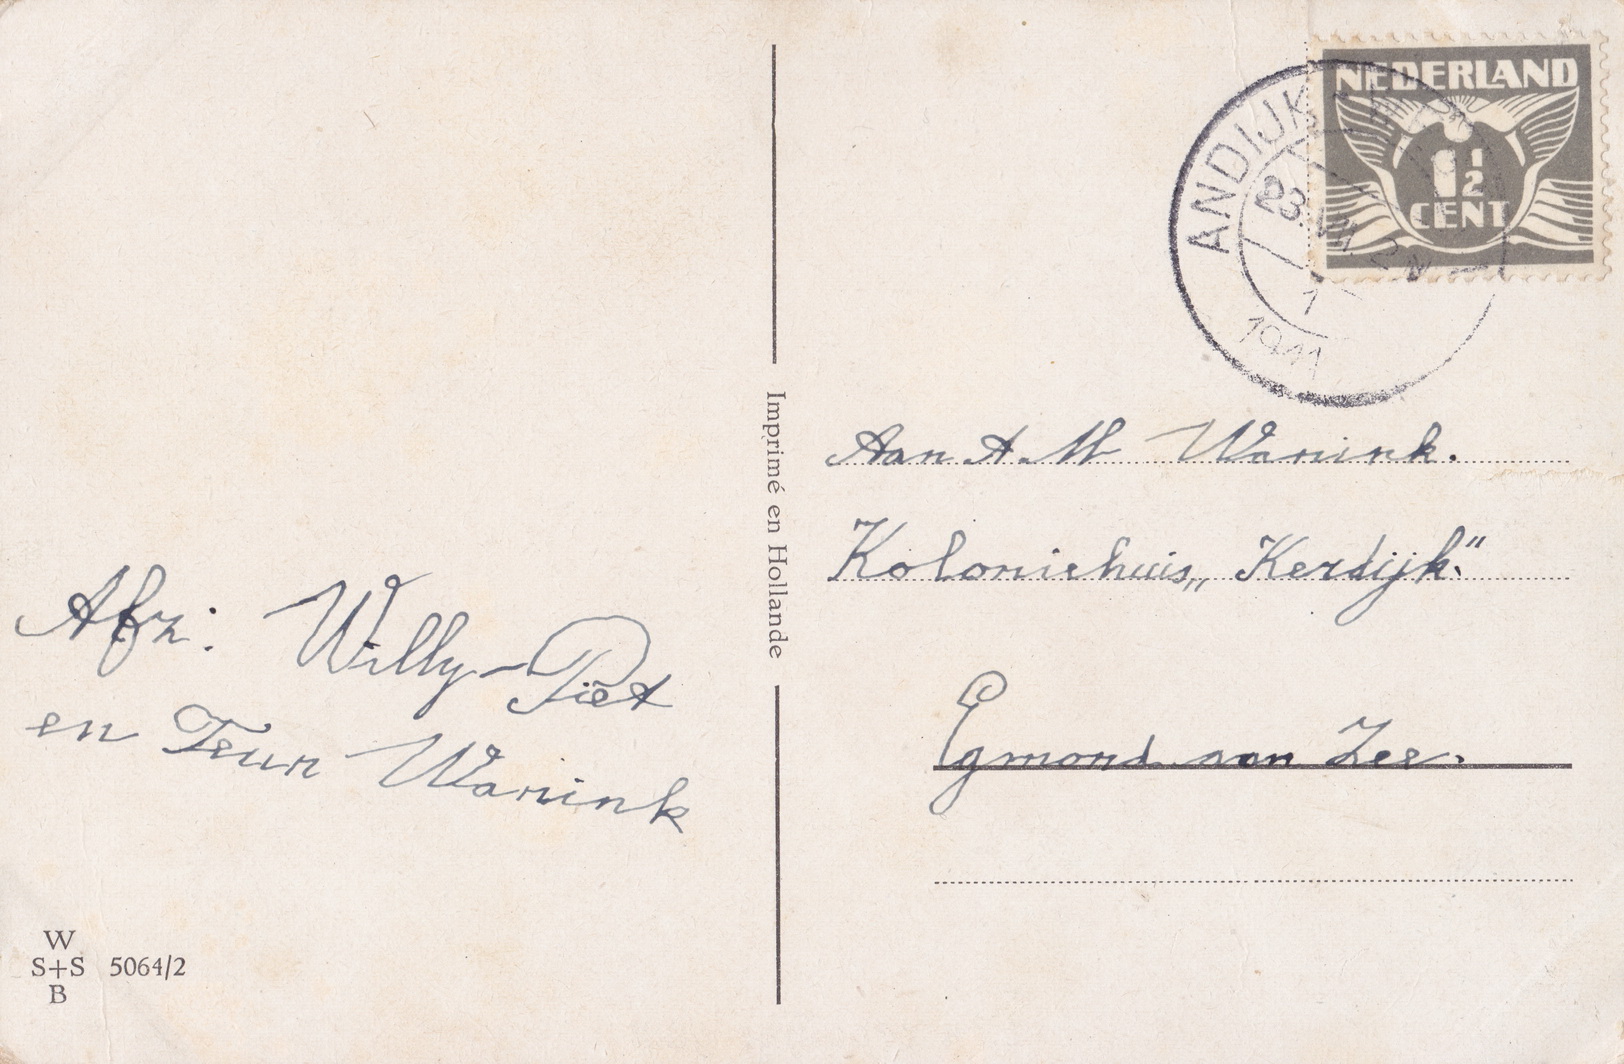 Afz: Willy-Piet
en Teun Warink
W
S+S 5064/2
B
Imprimé en Hollande
NEDERLAND
1½
CENT
ANDIJK
23 VIII 2 N
1
1941
Aan A. M Warink.
Koloniehuis „Kerdijk."
Egmond aan Zee.